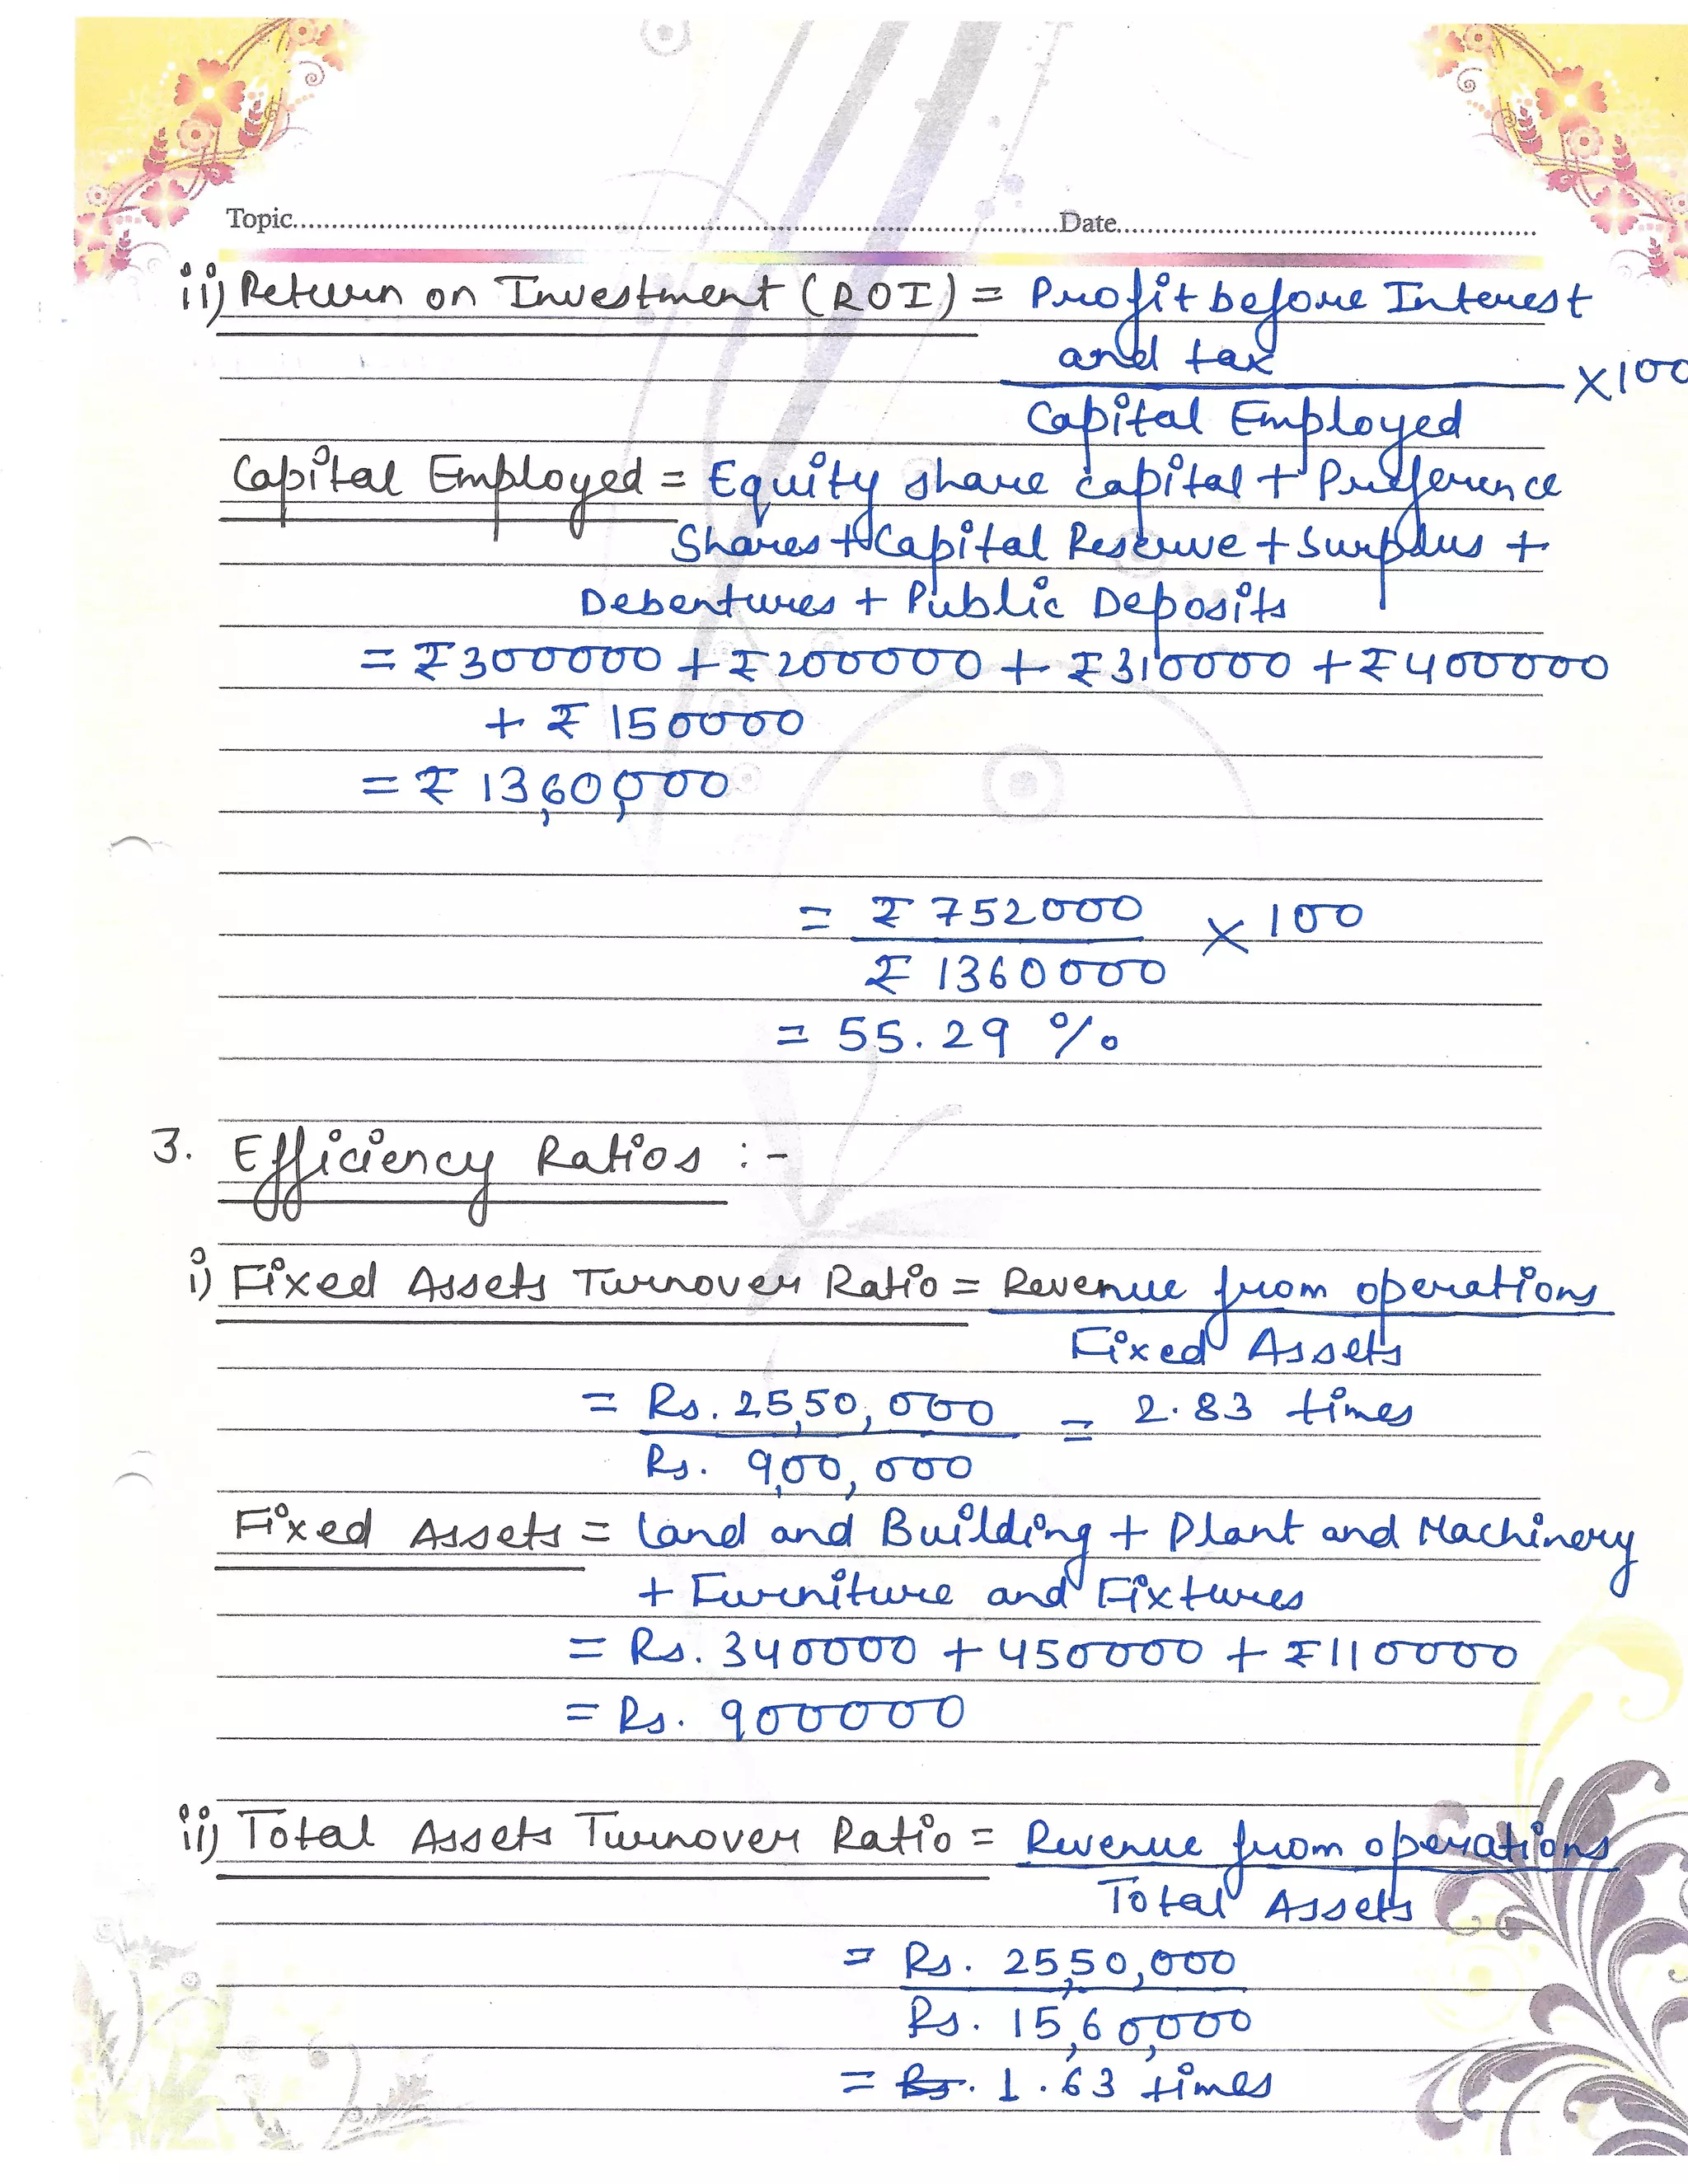 Topic.....Date.....
ii) Return on Investment (ROI) = Profit before Interest
and tax
× 100
Capital Employed
Capital Employed = Equity share capital + Preference
Shares + Capital Reserve + Surplus +
Debentures + Public Deposits
= ₹ 300000 + ₹ 200000 + ₹ 310000 + ₹ 400000
+ ₹ 150000
= ₹ 13,60,000
= ₹ 752000 × 100
₹ 1360000
= 55.29 %
3. Efficiency Ratios :-
i) Fixed Assets Turnover Ratio = Revenue from operations
Fixed Assets
= Rs. 25,50,000 = 2.83 times
Rs. 9,00,000
Fixed Assets = Land and Building + Plant and Machinery
+ Furniture and Fixtures
= Rs. 340000 + 450000 + ₹ 110000
= Rs. 900000
ii) Total Assets Turnover Ratio = Revenue from operations
Total Assets
= Rs. 25,50,000
Rs. 15,60,000
= Rs. 1.63 times